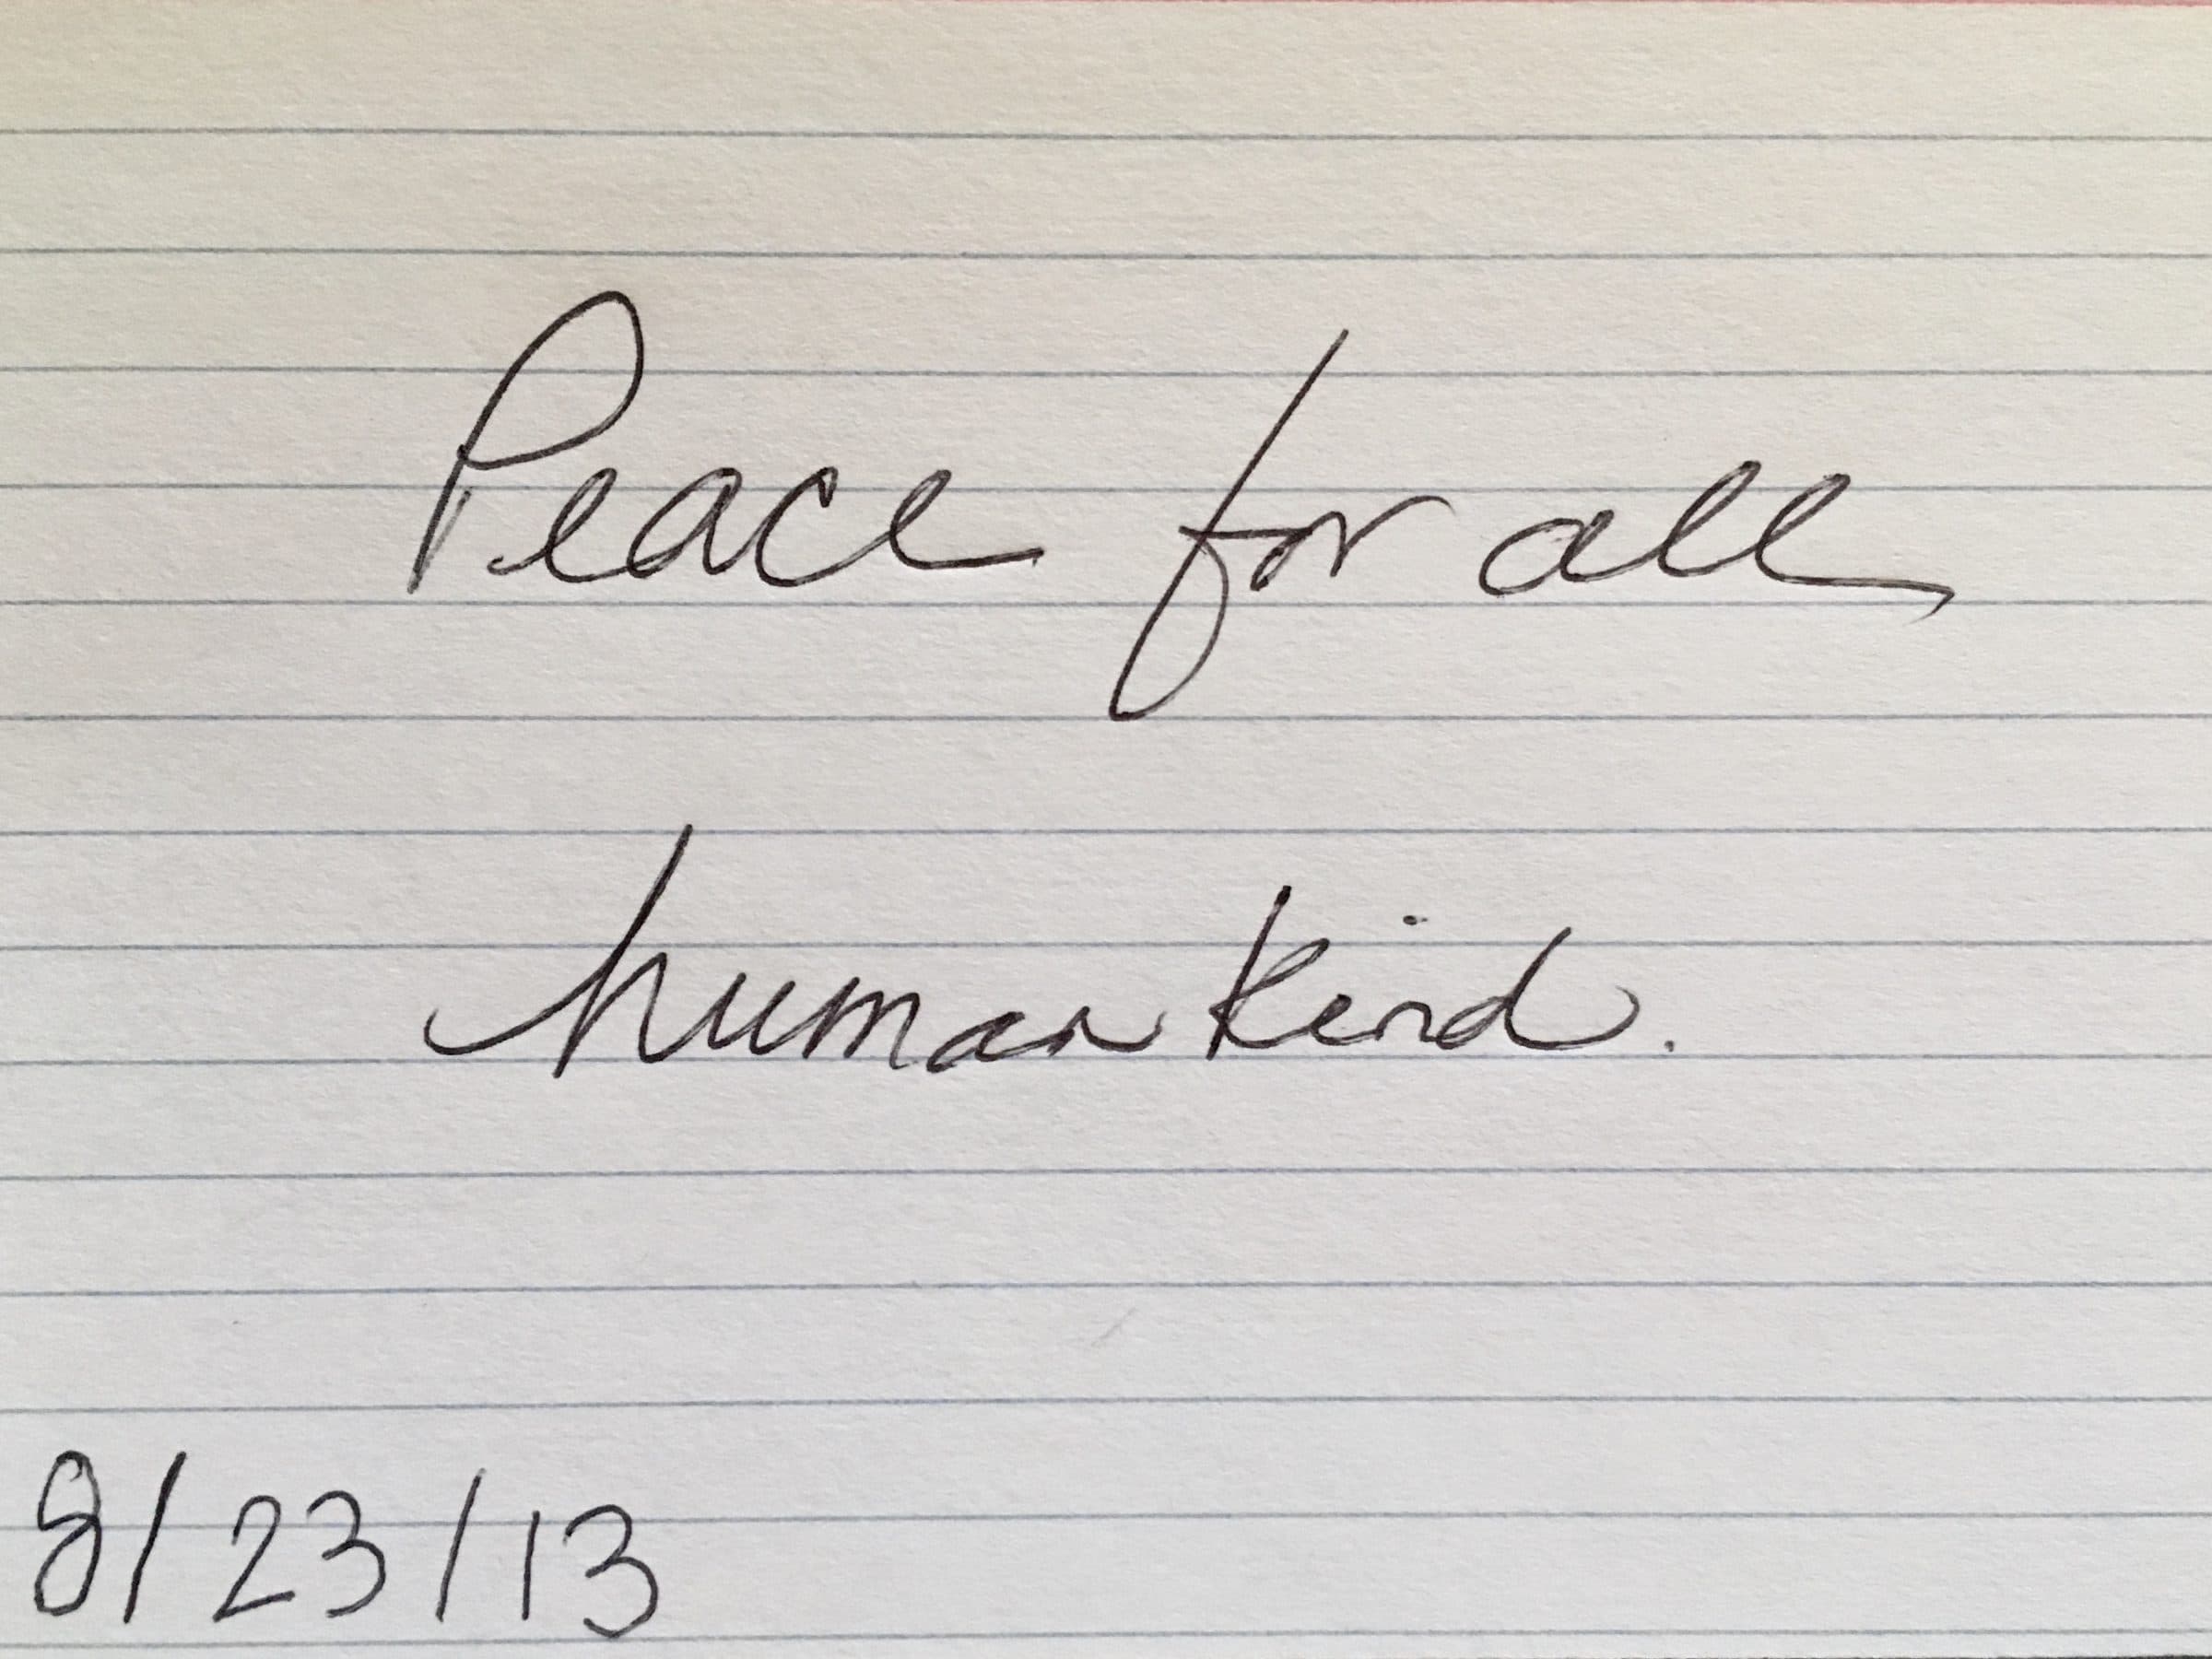 Peace for all
humankind.
8/23/13